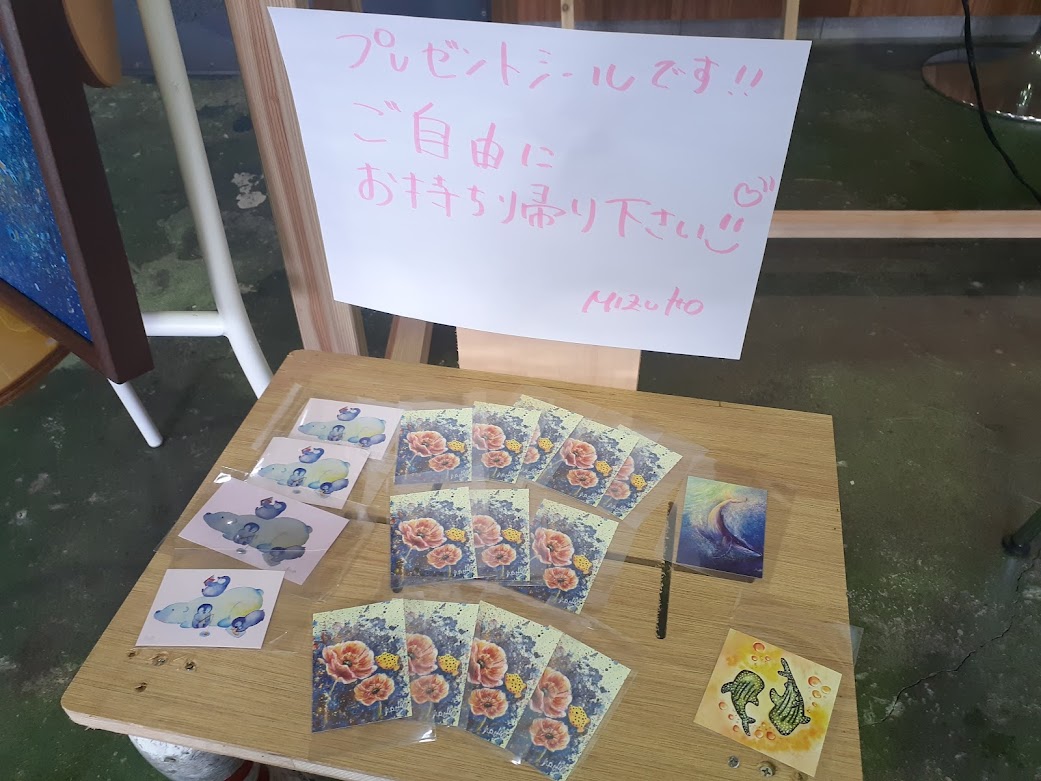 プレゼントシールです!!
ご自由に
お持ち帰り下さい
MIZUHO